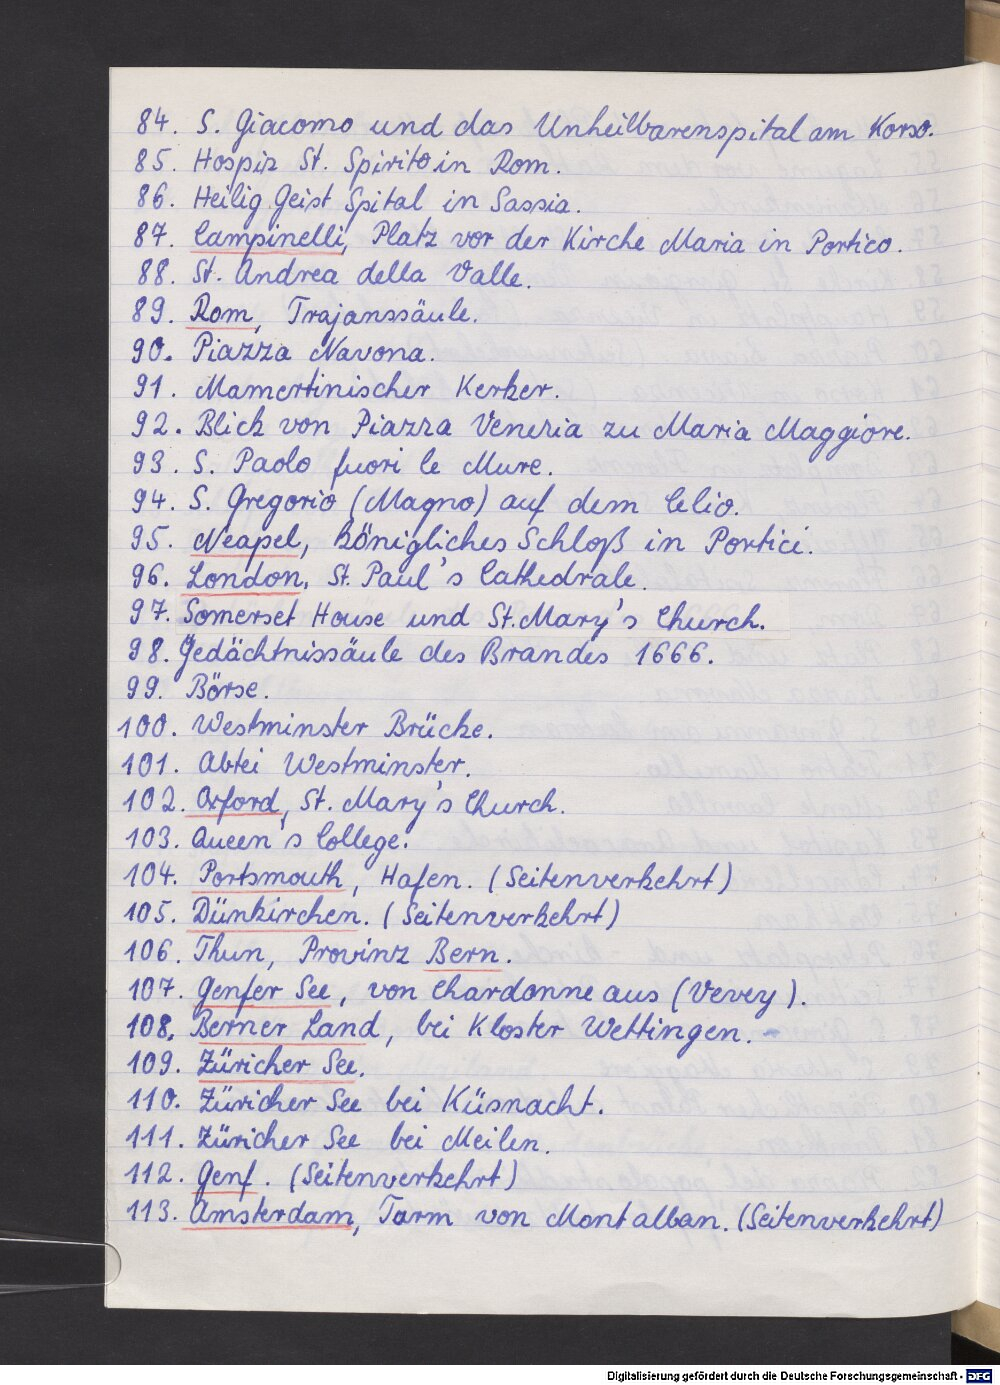 84. S. Giacomo und das Unheilbarenspital am Korso.
85. Hospiz St. Spirito in Rom.
86. Heilig Geist Spital in Sassia.
87. Campinelli, Platz vor der Kirche Maria in Portico.
88. St. Andrea della Valle.
89. Rom, Trajanssäule.
90. Piazza Navona.
91. Mamertinischer Kerker.
92. Blick von Piazza Venezia zu Maria Maggiore.
93. S. Paolo fuori le Mure.
94. S. Gregorio (Magno) auf dem Celio.
95. Neapel, Königliches Schloß in Portici.
96. London, St. Paul's Cathedrale.
97. Somerset House und St. Mary's Church.
98. Gedächtnissäule des Brandes 1666.
99. Börse.
100. Westminster Brücke.
101. Abtei Westminster.
102. Oxford, St. Mary's Church.
103. Queen's College.
104. Portsmouth, Hafen. (Seitenverkehrt)
105. Dünkirchen. (Seitenverkehrt)
106. Thun, Provinz Bern.
107. Genfer See, von Chardonne aus (Vevey).
108. Berner Land, bei Kloster Wettingen.
109. Züricher See.
110. Züricher See bei Küsnacht.
111. Züricher See bei Meilen.
112. Genf. (Seitenverkehrt)
113. Amsterdam, Turm von Montalban. (Seitenverkehrt)
Digitalisierung gefördert durch die Deutsche Forschungsgemeinschaft - DFG